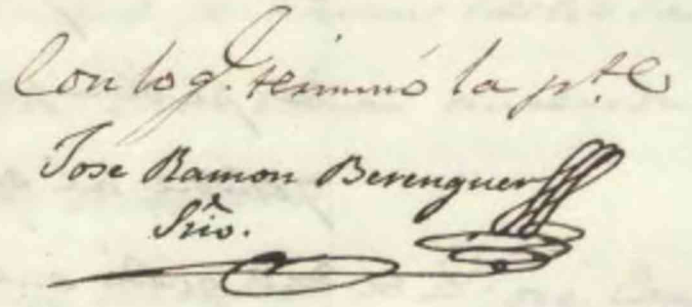 Con lo q.e terminó la p.te
José Ramon Berenguer
Srio.